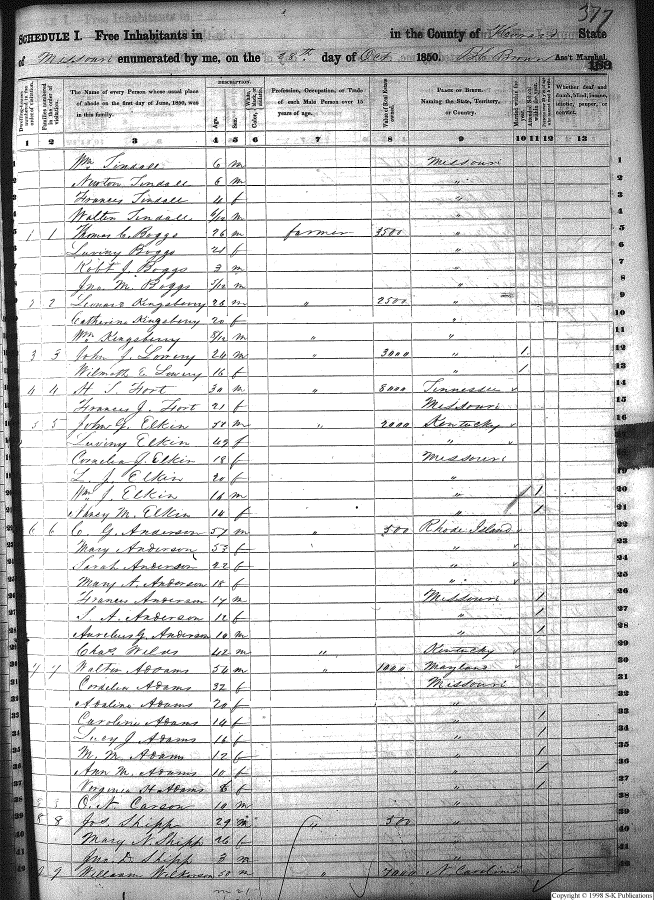 377
SCHEDULE I. Free Inhabitants in in the County of Howard State
of Missouri enumerated by me, on the 28th day of Oct 1850. Ass't Marshal.
DESCRIPTION.
Dwelling-houses numbered in the order of visitation.
Families numbered in the order of visitation.
The Name of every Person whose usual place of abode on the first day of June, 1850, was in this family.
Age.
Sex.
Color,
Profession, Occupation, or Trade of each Male Person over 15 years of age.
Value of Real Estate owned.
PLACE OF BIRTH. Naming the State, Territory, or Country.
Married within the year.
Whether deaf and dumb, blind, insane, idiotic, pauper, or convict.
1 2 3 4 5 6 7 8 9 10 11 12 13
Wm Tindall 6 m Missouri 1
Newton Tindall 5 m " 2
Frances Tindall 4 f " 3
Walter Tindall m " 4
1 1 Thomas C. Boggs 26 m farmer 3500 " 5
Luviny Boggs 21 f " 6
Robt J. Boggs 3 m " 7
Jno. M. Boggs m " 8
2 2 Leonard Kingsberry 26 m " 2500 " 9
Catherine Kingsberry 20 f " 10
Wm Kingsberry m " " 11
3 3 John J. Lowery 24 m " 3000 " 1 12
Wilmoth E. Lowery 16 f " 1 13
4 4 H S Fort 30 m " 8000 Tennessee 14
Frances J. Fort 21 f Missouri 15
5 5 John G. Elkin 50 m " 2000 Kentucky 16
Luviny Elkin 49 f "
Cornelia J. Elkin 18 f Missouri
L. J. Elkin 20 f "
Wm J. Elkin 16 m " 1 20
M. Elkin 14 f " 1 21
6 6 C. G. Anderson 57 m " 500 Rhode Island 22
Mary Anderson 53 f " 23
Sarah Anderson 22 f " 24
Mary A. Anderson 18 f " 25
Frances Anderson 17 m Missouri 1 26
S. A. Anderson 12 f " 1 27
Aurelius G. Anderson 10 m " 1 28
Chas. Wilds 42 m " Kentucky 29
7 7 Walter Adams 54 m " 1000 Maryland 30
Cordelia Adams 32 f Missouri 31
Adaline Adams 20 f " 32
Caroline Adams 14 f " 1 33
Lucy J. Adams 16 f " 1 34
M. M. Adams 12 f " 1 35
Ann M. Adams 10 f " 1 36
Virginia H. Adams 8 f " 1 37
O. N. Carson 10 m " 38
8 8 Jos. Shipp 29 m " 500 " 39
Mary N. Shipp 26 f "
Jno. D. Shipp 3 m "
9 9 William Wilkerson 50 m " 7000 N Carolina
Copyright © 1998 S-K Publications